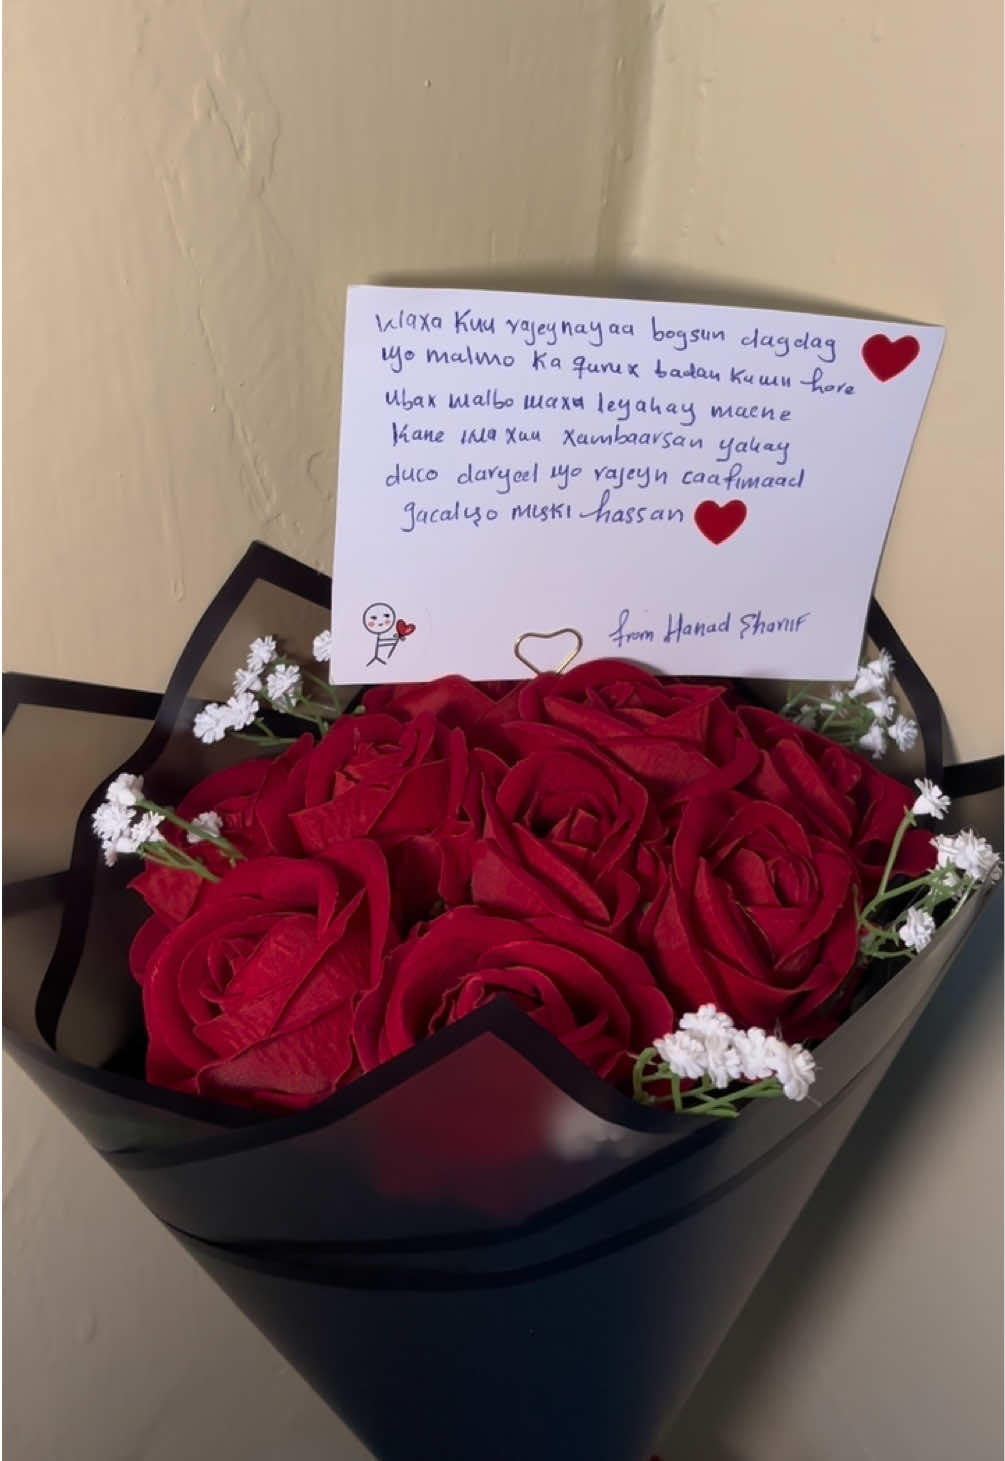 Waxa Kuu rajeynayaa bogsun dagdag
iyo malmo ka qurux badan kuwii hore
ubax walbo waxa leyahay macne
Kane waxuu xambaarsan yahay
duco daryeel iyo rajeyn caafimaad
gacaliso miski hassan
from Hanad Shariif